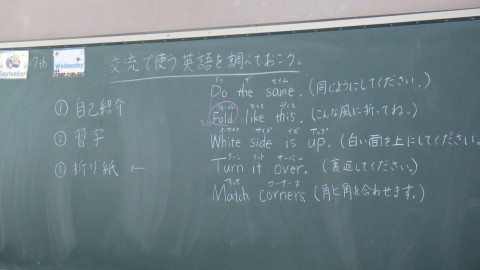 September
17th
Wednesday
交流で使う英語を調べておこう。
① 自己紹介
② 習字
③ 折り紙 ←
ドゥ ザ セイム
Do the same. (同じようにしてください。)
フォールド ライク ディス
Fold like this. (こんな風に折ってね。)
ホワイト サイド イズ アップ
White side is up. (白い面を上にしてください。
ターン イット オーバー
Turn it over. (裏返してください。)
マッチ コーナーズ
Match corners (角と角を合わせます。)